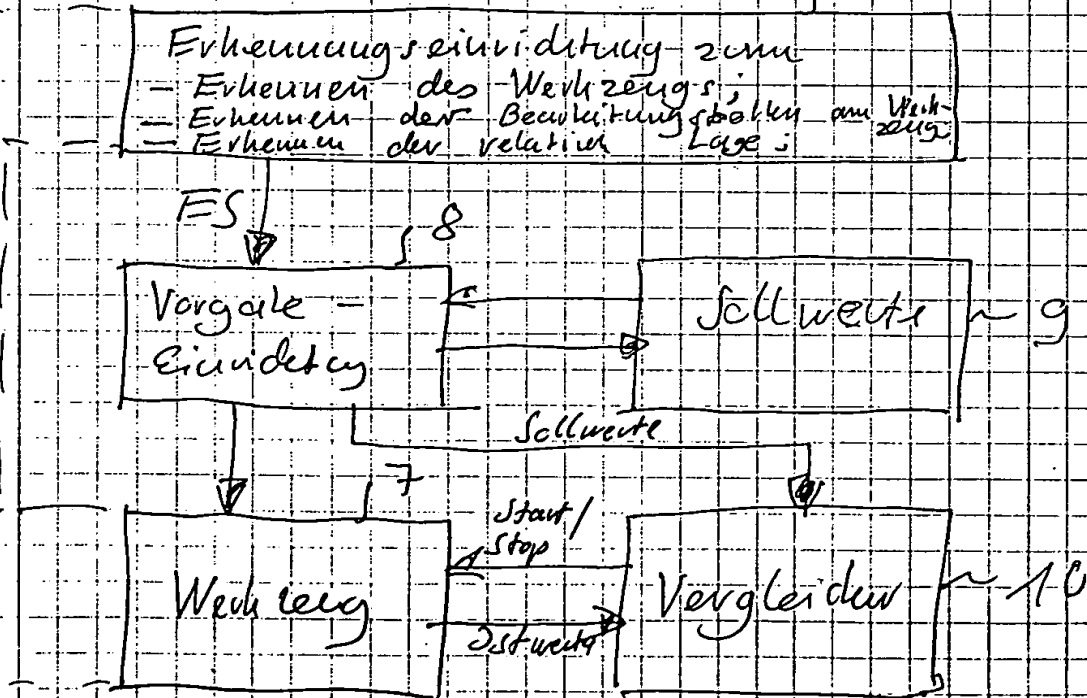 Erkennungseinrichtung zum
- Erkennen des Werkzeugs;
- Erkennen der Bearbeitungsstellen am Werk-
zeug
- Erkennen der relativen Lage;
ES
8
Vorgabe -
Einrichtung
Sollwerte ~ 9
Sollwerte
7
Start/
Stop
Werkzeug
Vergleicher ~ 10
Istwerte